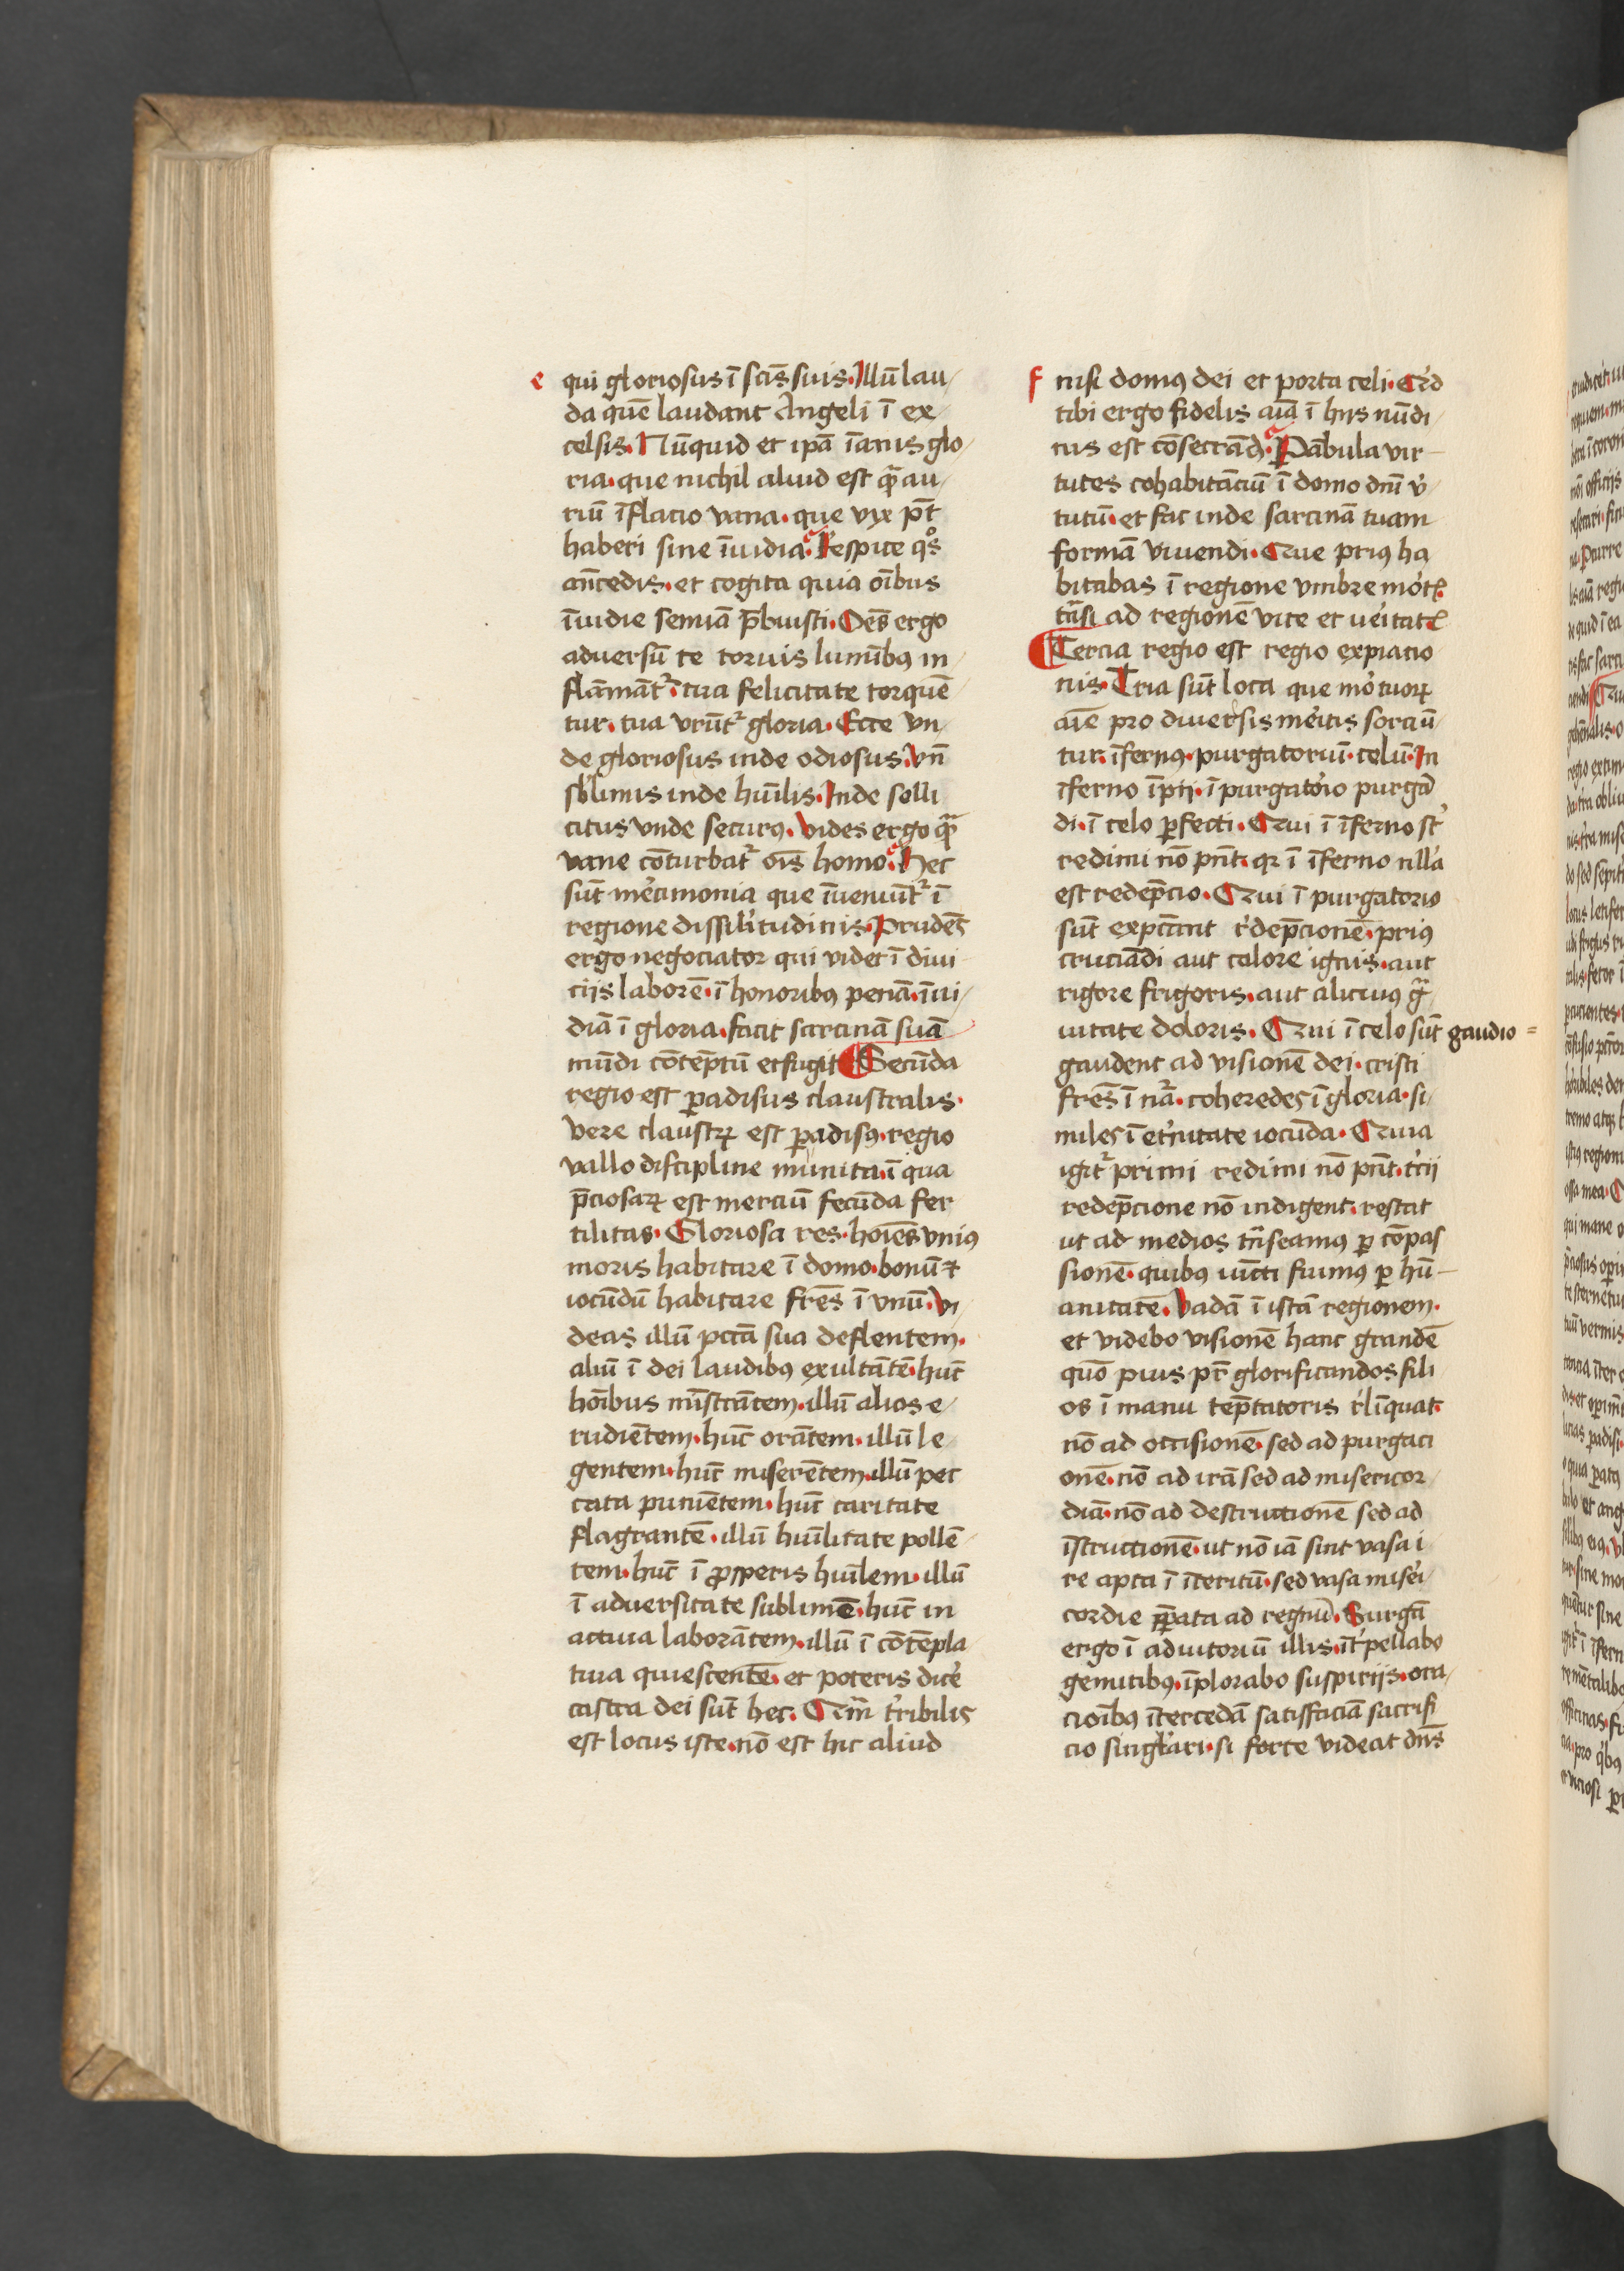 e qui gloriosus ī scīs suis. Illū lau
da quē laudant Angeli ī ex
celsis. Nūquid et ipā īanis glo
ria. que nichil aliud est qᷓ au
riū īflacio vana. que vix pōt
haberi sine īuidia. Respice qͦs
an̄cedis. et cogita quia oībus
īuidie semīa p̄buisti. Oēs ergo
adversū te toruis lumībꝰ in
flāmāt᷑. tua felicitate torquē
tur. tua vrūt᷑ gloria. Ecce vn
de gloriosus inde odiosus. vn̄
sb̕limis inde huīlis. Inde solli
citus vnde securꝰ. Vides ergo qᷓ
vane cōturbat᷑ oīs homo. Hec
sūt mēcimonia que īueniūt᷑ ī
regione dissilitudinis. Prudēs
ergo negociator qui videt ī diui
ciis laborē. ī honoribꝰ penā. īui
diā ī gloria. facit sarcinā suā
mūdi cōtēptū et fugit Secūda
regio est ꝑadisus claustralis.
Vere claustꝝ est ꝑadisꝰ. regio
vallo discipline munita. ī qua
p̄ciosaꝝ est merciū fecūda fer
tilitas. Gloriosa res. hoīes vniꝰ
moris habitare ī domo. bonū ⁊
iocūdū habitare frēs ī vnū. Vi
deas illū pctā sua deflentem.
aliū ī dei laudibꝰ exultātē. hūc
hoībus mīstrātem. illū alios e
rudiētem. hūc orātem. illū le
gentem. hūc miserētem. illū pec
cata puniētem. hūc caritate
flagrantē. illū huīlitate pollē
tem. hūc ī ꝓsperis huīlem. illū
ī adversitate sublimē. hūc in
actiua laborātem. illū ī cōtēpla
tiua quiescentē. et poteris dice᷑
castra dei sūt hec. Qͣm t᷑ribilis
est locus iste. nō est hic aliud
f nisi domꝰ dei et porta celi. Qͥd
tibi ergo fidelis aīa ī hiis nūdi
nis est cōsectādū. Pābula vir
tutes cohabitāciū ī domo dnī v᷑
tutū. et fac inde sarcinā tuam
formā viuendi. Que priꝰ ha
bitabas ī regione vmbre mo᷑tꝭ
trā̄si ad regionē vite et ue᷑itatꝭ
Tercia regio est regio expiacio
nis. Tria sūt loca que mo᷑tuoꝝ
aīe pro diuersis me᷑itis sorciū
tur. īfernꝰ. purgatoriū. celū. In
īferno īpij. ī purgato᷑io purgā
di. ī celo ꝑfecti. Qui ī īferno st̄
redimi nō pn̄t. qꝛ ī īferno nll̕a
est redēpcio. Qui ī purgatorio
sūt expctant r᷑dēpcionē. priꝰ
cruciādi aut calore ignis. aut
rigore frigoris. aut alicuiꝰ gᷓ
uitate doloris. Qui ī celo sūt gaudio =
gaudent ad visionē dei. cristi
frēs ī nᷓ. coheredes ī gloria. si
miles ī et᷑nitate iocūda. Quia
igit᷑ primi redimi nō pn̄t. t᷑cii
redēpcione nō indigent. restat
ut ad medios trāseamꝰ ꝑ cōpas
sionē. quibus iūcti fuimꝰ ꝑ hū
anitatē. Vadā ī istā regionem.
et videbo visionē hanc grandē
quō pius pr̄ glorificandos fili
os ī manu tēptatoris r᷑līquat.
nō ad occisionē. sed ad purgaci
onē. nō ad irā sed ad misericor
diā. nō ad destructionē sed ad
īstructionē. ut nō iā sint vasa i
re apta ī īteritū. sed vasa mise᷑i
cordie ꝑ̄ata ad regnū. Surgā
ergo ī adiutoriū illis. īt᷑pellabo
gemitibꝰ. īplorabo suspiriis. ora
cioībꝰ ītercedā satisfaciā sacrifi
cio singl̕ari. si forte videat dn̄s